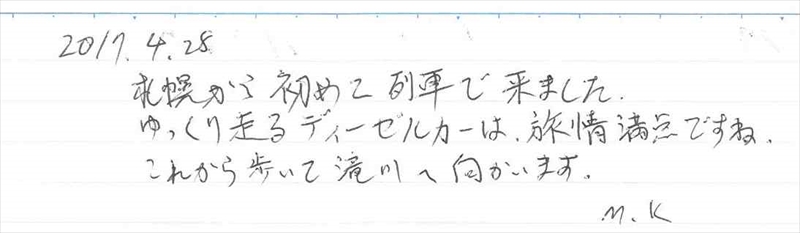 2017.4.28
札幌から初めて列車で来ました.
ゆっくり走るディーゼルカーは、旅情満点ですね.
これから歩いて滝川へ向かいます.
M.K